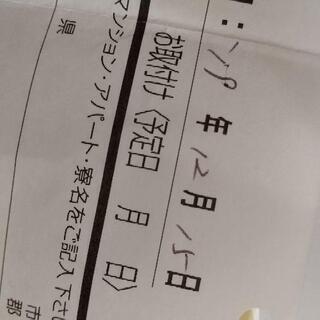 : 年12月15日
お取付け〈予定日 月 日〉
マンション・アパート・寮名をご記入下さ
県
市
郡